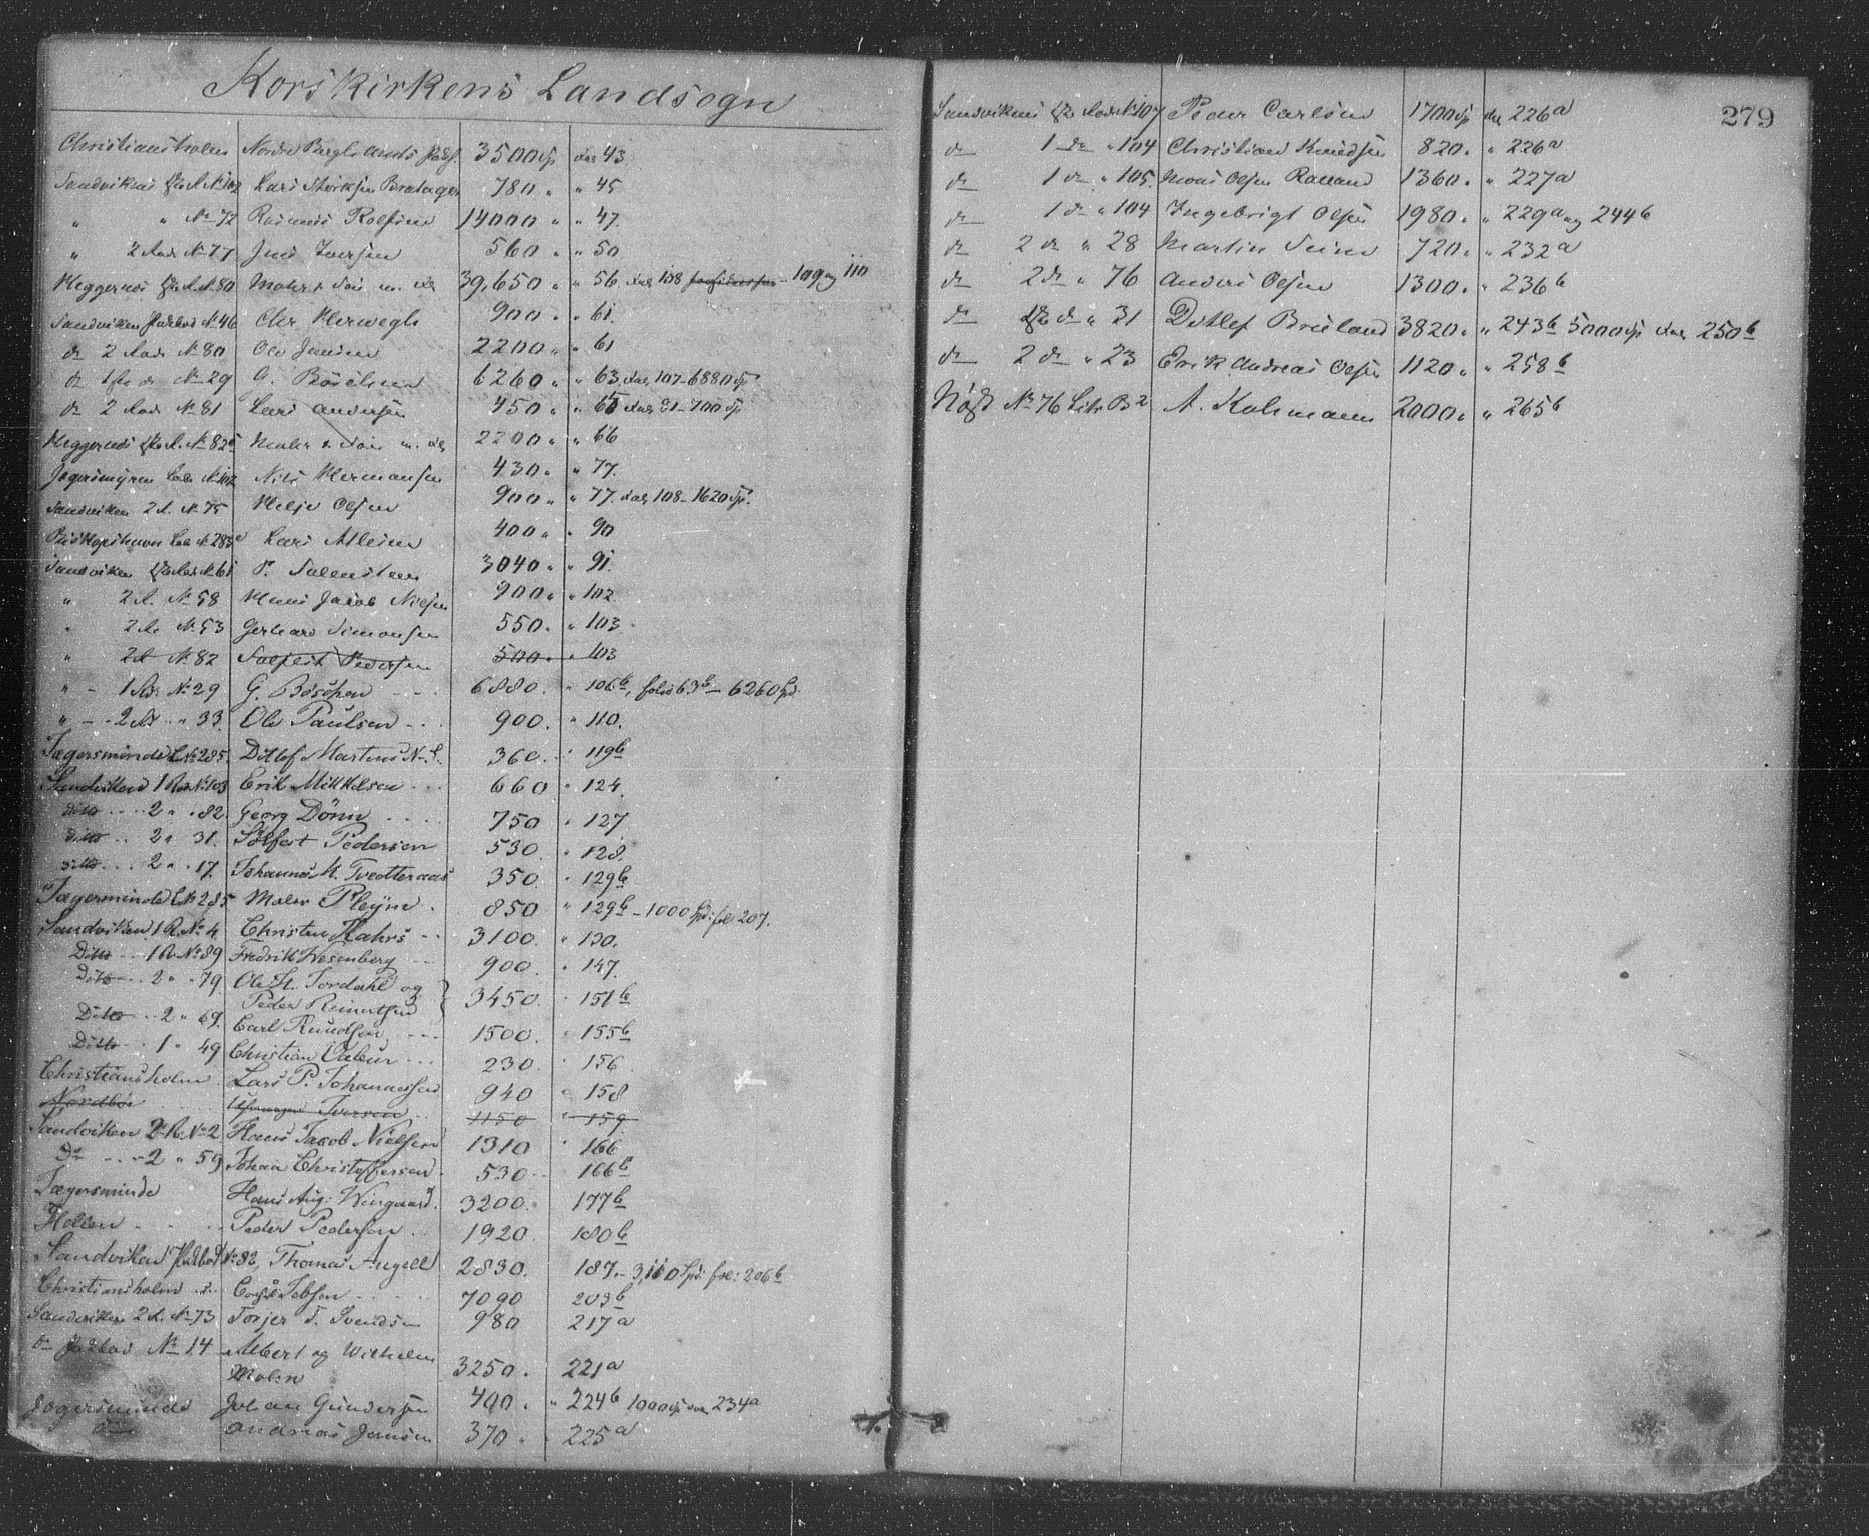 Korskirkens Landsogn
Christiansholm Nordre Berghs Amts 3500 43.
Sandvikens No 102 Lars Bratager 780 " " 45
" " No 72 Rasmus Rolfsen 14000 " " 47.
" 2 Rode No 77 Jens Iversen 560 " " 50
Heggernes No 80 Mohr & Søn m. 39,650 " " 56. 108 109 og 110
Sandviken No 46 Chr Herwegh 900 " " 61.
do 2 Rode No 80 Ole Jensen 2200 " " 61
do 1ste do No 29 G. Böschen 6260 " " 63. 107-6880
do 2 Rode No 81 Lars Andersen 450 " " 65 81-700
Heggernes No 82 Mohr & Søn m. 2200 " " 66
Jægersmyren No 102 Nils Hermansen 430 " " 77.
Sandviken 2 R. No 75 Helje Olsen 900 " " 77. 108-1620
No 283a Lars 400 " " 90
Sandviken No 61 P. 3040 " " 91.
" 2 R. No 58 Hans Jacob Nielsen 900 " " 102
" 2 R. No 53 Gerhard Simonsen 550 " " 103
" 2 R No 82 Solfest Pedersen 500 " " 103
" - 1 Rd. No 29 G. Böschen 6880. " 106b, folio 63b - 6260 Spd.
" - 2 Rd " 33. Ole Paulsen 900. " 110.
Jægersminde L No 285. Ditlef Martens N. S. 360. " 119b
Sandviken 1 Rode No 103 Erik Mikkelsen 660 " 124.
Ditto 2 " " 82. Georg Dönn 750 " 127
Ditto 2 " 31. Sölfest Pedersen 530. " 128.
Ditto 2 " " 17. Johannes M. Tveitteraas 350. " 129b
Jægerminde L No 285 Maler Pleym. 850 " 129b - 1000 Spd: fol: 207.
Sandviken 1 R. No 4 Christen Hahrs 3100. " 130.
Ditto 1 R No 89 Fredrik Wesenberg 900. " 147.
Ditto 2 " " 79. Ole H. Tordahl og
Peder Reinertsen 3450. " 151b
Ditto 2 " 67. Carl Knudsen 1500. " 155b
Ditto 1 " 49 Christian Valeur 230. " 156
Christiansholm Lars P. Johannessen 940 " 158
Nordbøe Iversen 1150 " 159.
Sandviken 2 R. No 2 Hans Jacob Nielsen 1310 " 166
Do 2 " 59 Johan Christoffersen 530 166b
Jægersminde Hans Aug: Wingaard. 3200. 177b
Holen Peder Pedersen 1920. 180b
Sandviken No 82, Thomas Angell 2830. 187. - 3,110 Spd: fol: 206b
Christiansholm Jebsen 7090 203b
Sandviken 2 R. No 73 Torjer T. Svendsen 980 217a
do No 14 Albert og Wilhelm
Mohn 3250. 221a
Jægersminde Johan Gundersen 400. " 224b 1000 234a
do Andreas Jansen 370 " 225a
279
Sandvikens No 107 Peder Carlsen 1700 226a
do 1 do " 104 Christian Knudsen 820 " " 226a
do 1 do " 105. Mons Olsen 1360 " " 227a
do 1 do " 104 Ingebrigt Olsen 1980 " " 229a og 244b
do 2 do " 28 Martin 720 " " 232a
do 2 do " 76 Anders Olsen 1300 " " 236b
do do " 31 Detlef Brieland 3820 " " 243b 5000 250b
do 2 do " 23 Erik Andreas Olsen 1120 " " 258b
Nøst No 76 Litr B2 A. Kahrmann 2000 " " 265b